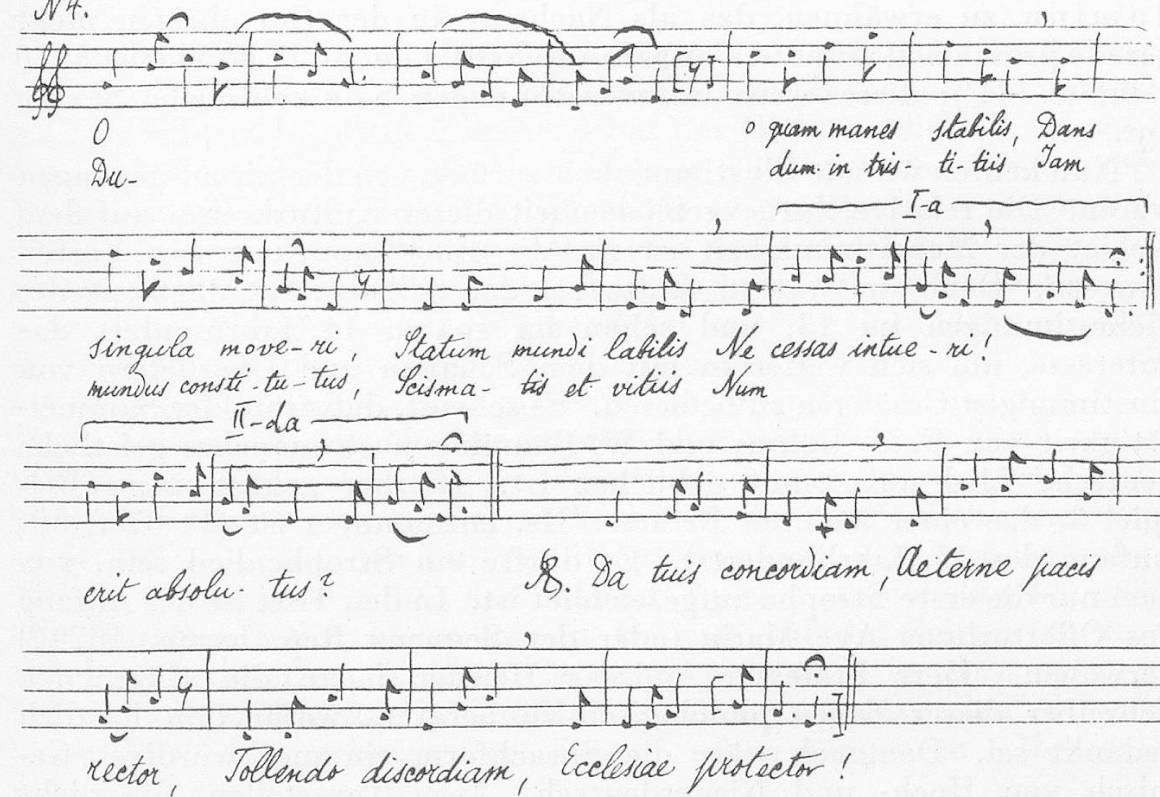 N4.
O o quam manes stabilis, Dans
Du- dum in tris- ti- tiis Jam
I-a
singula move-ri, Statum mundi labilis Ne cessas intue-ri!
mundus consti-tu-tus, Scisma- tis et vitiis Num
II-da
erit absolu- tus? R. Da tuis concordiam, Aeterne pacis
rector, Tollendo discordiam, Ecclesiae protector!